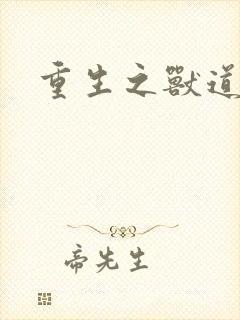 重生之獸道
帝先生